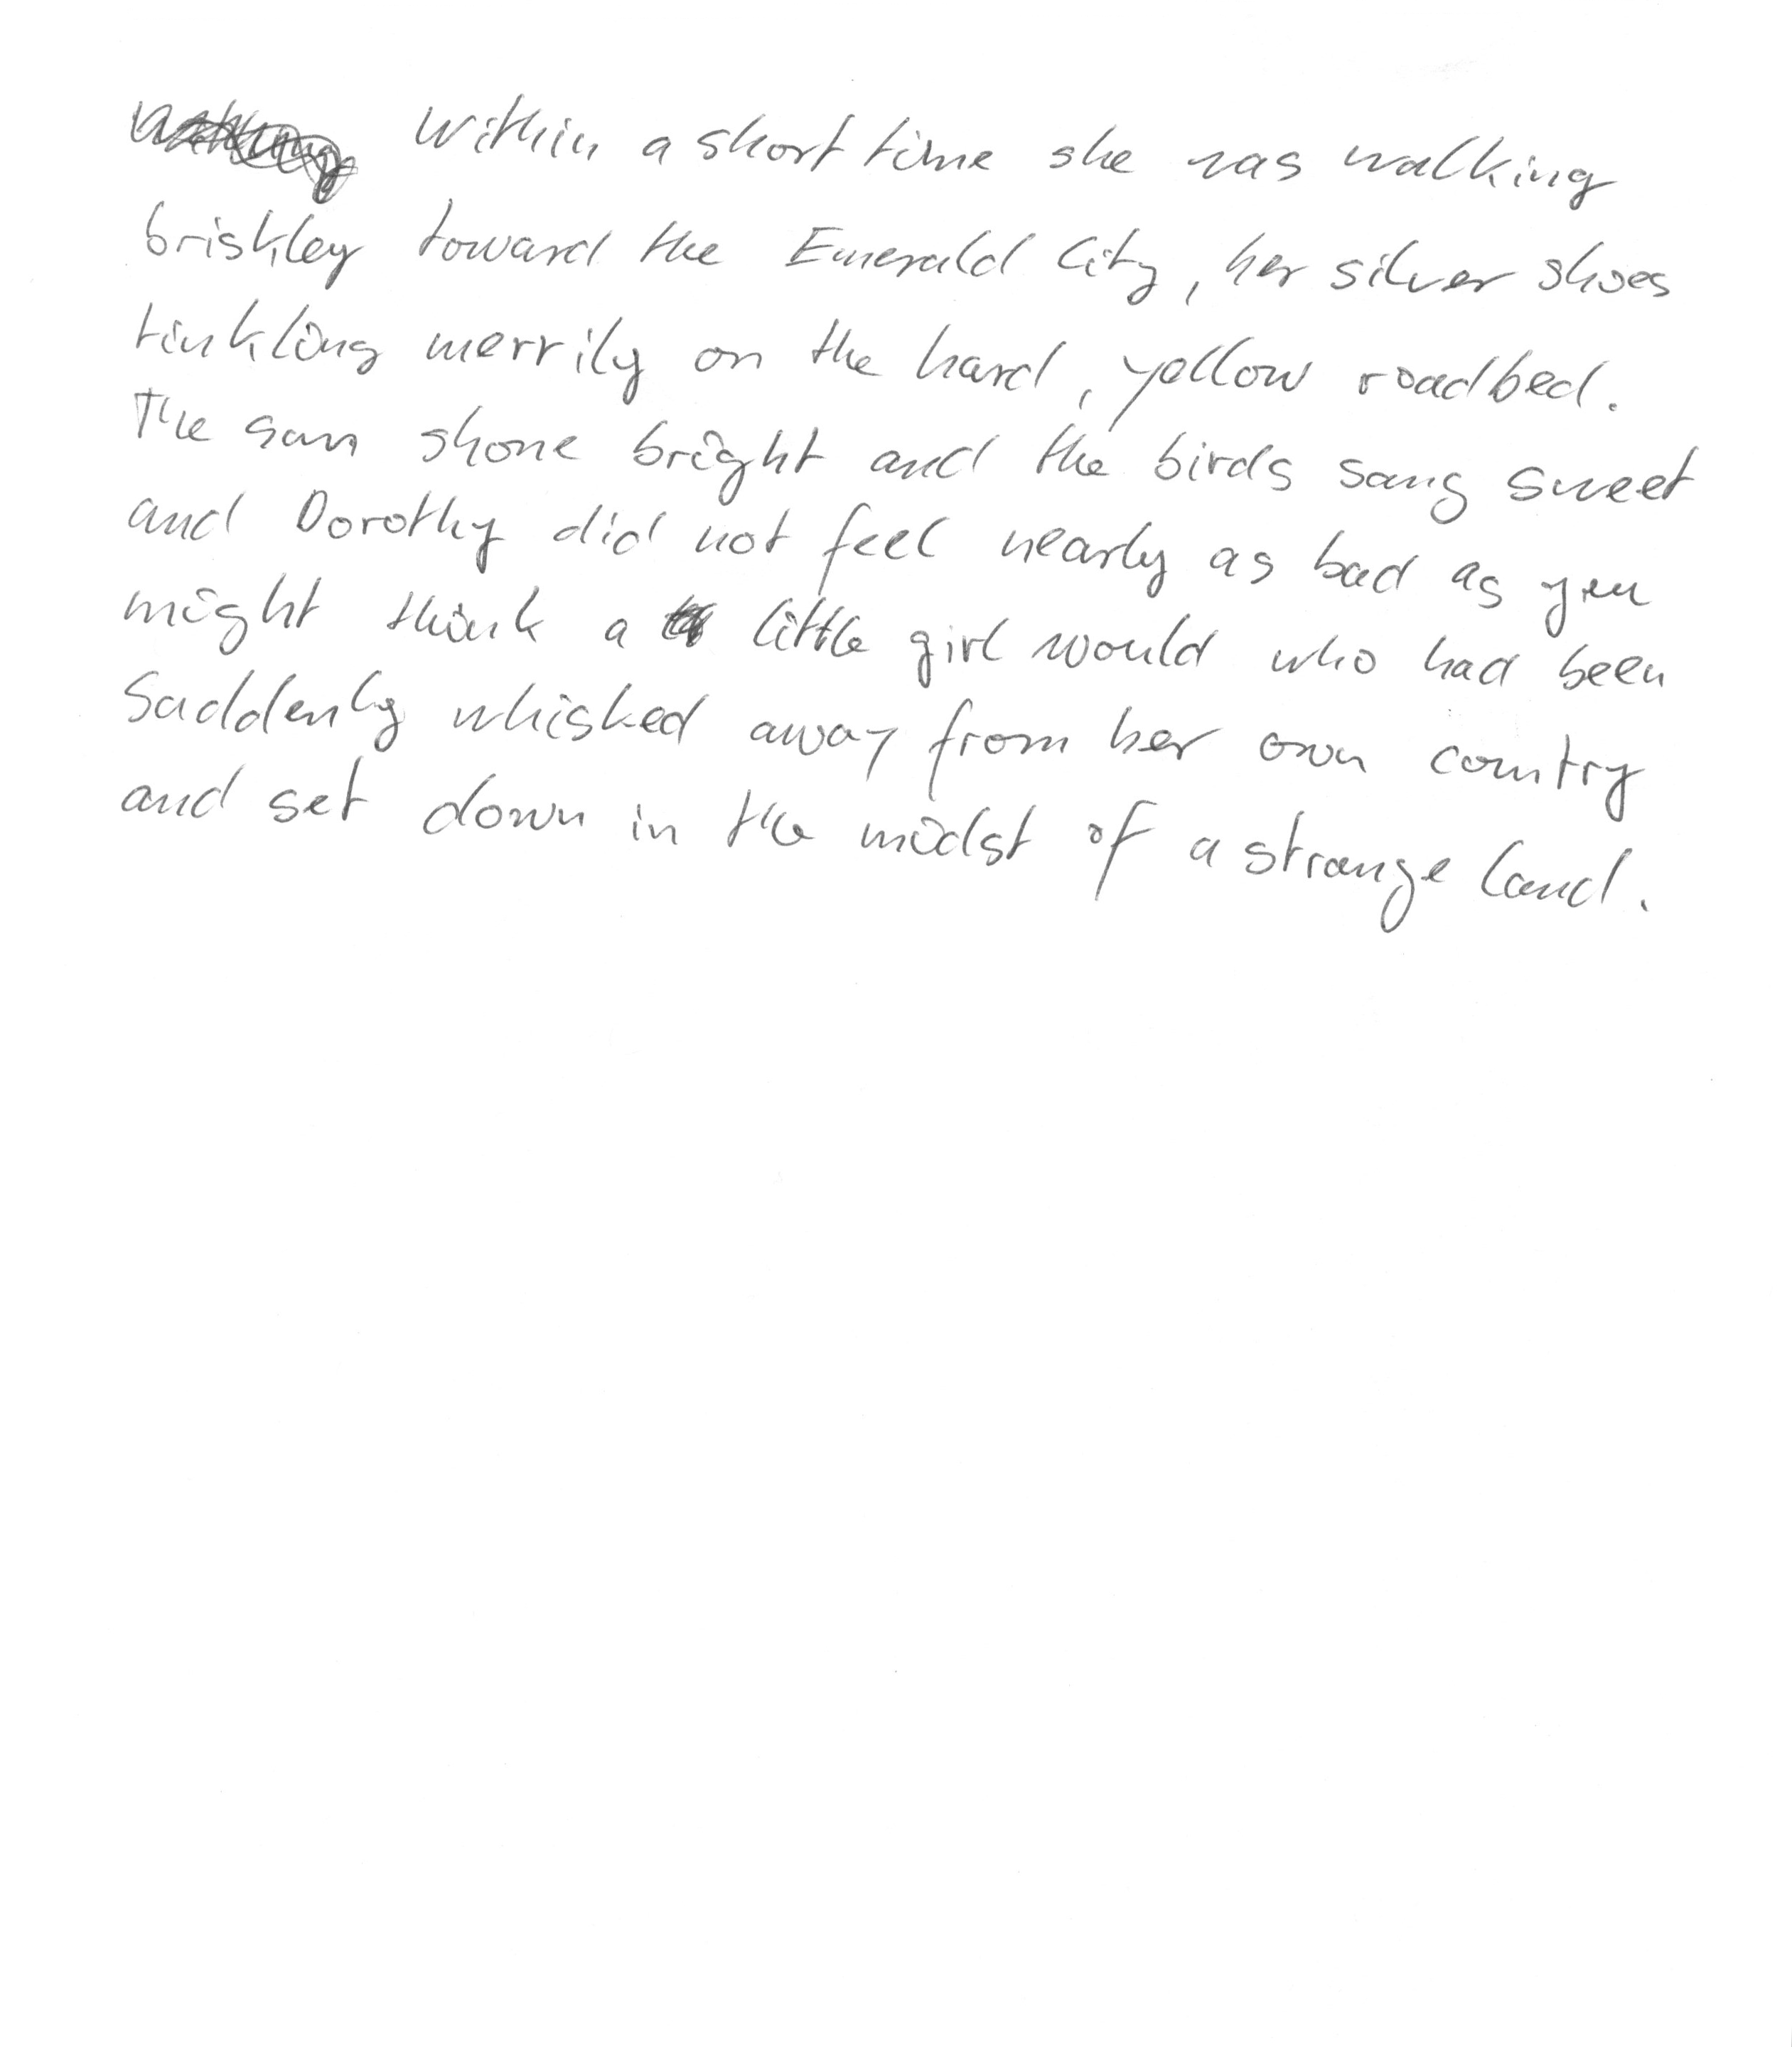 Within a short time she was walking
briskley toward the Emerald City, her silver shoes
tinkling merrily on the hard, yellow roadbed.
The sun shone bright and the birds sang sweet
and Dorothy did not feel nearly as bad as you
might think a little girl would who had been
suddenly whisked away from her own country
and set down in the midst of a strange land.